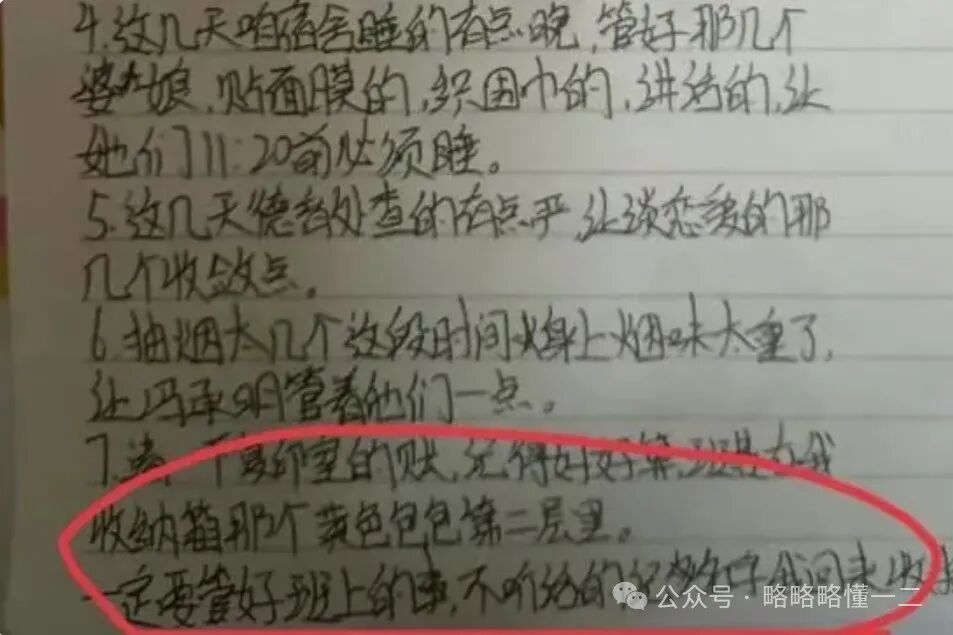 4.这几天咱宿舍睡的有点晚,管好那几个
婆娘,贴面膜的,织围巾的,讲话的,让
她们11:20前必须睡。
5.这几天德教处查的有点严,让谈恋爱的那
几个收敛点。
6.抽烟太几个这段时间身上烟味太重了,
让冯承明管着他们一点。
7.清一下复印室的账,记得好好算,班费在我
收纳箱那个黄色包包第二层里。
一定要管好班上的事,不听话的记
公众号·略略略懂一二